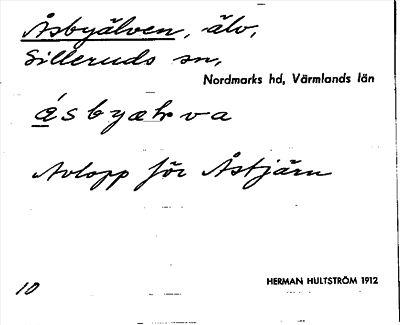 Åsbyälven, älv,
Silleruds sn,
Nordmarks hd, Värmlands län
Avlopp för Åstjärn
10
HERMAN HULTSTRÖM 1912